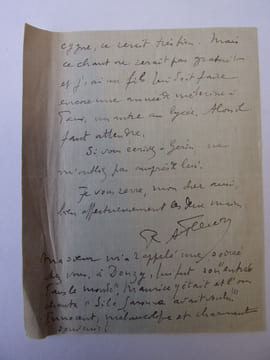 cygne, ce serait très bien. Mais
ce chant ne serait pas gratuit
et j'ai un fils qui doit faire
encore une année de médecine à
Paris, un autre au lycée. Alors il
faut attendre.
Si vous écrivez à Gérin ne
m'oubliez pas auprès de lui.
Je vous serre, mon cher ami,
bien affectueusement les deux mains.
Ma sœur m'a rappelé une soirée
chez vous, à Donzy, qui fut son "entrée
dans le monde". Maurice y était et l'on
chanta "Si la Garonne avait voulu"
Innocent, mélancolique et charmant
souvenir!